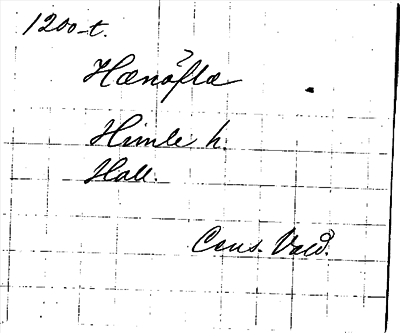 1200-t.
Hænöfla
Himle h.
Hall.
Cens. Vald.